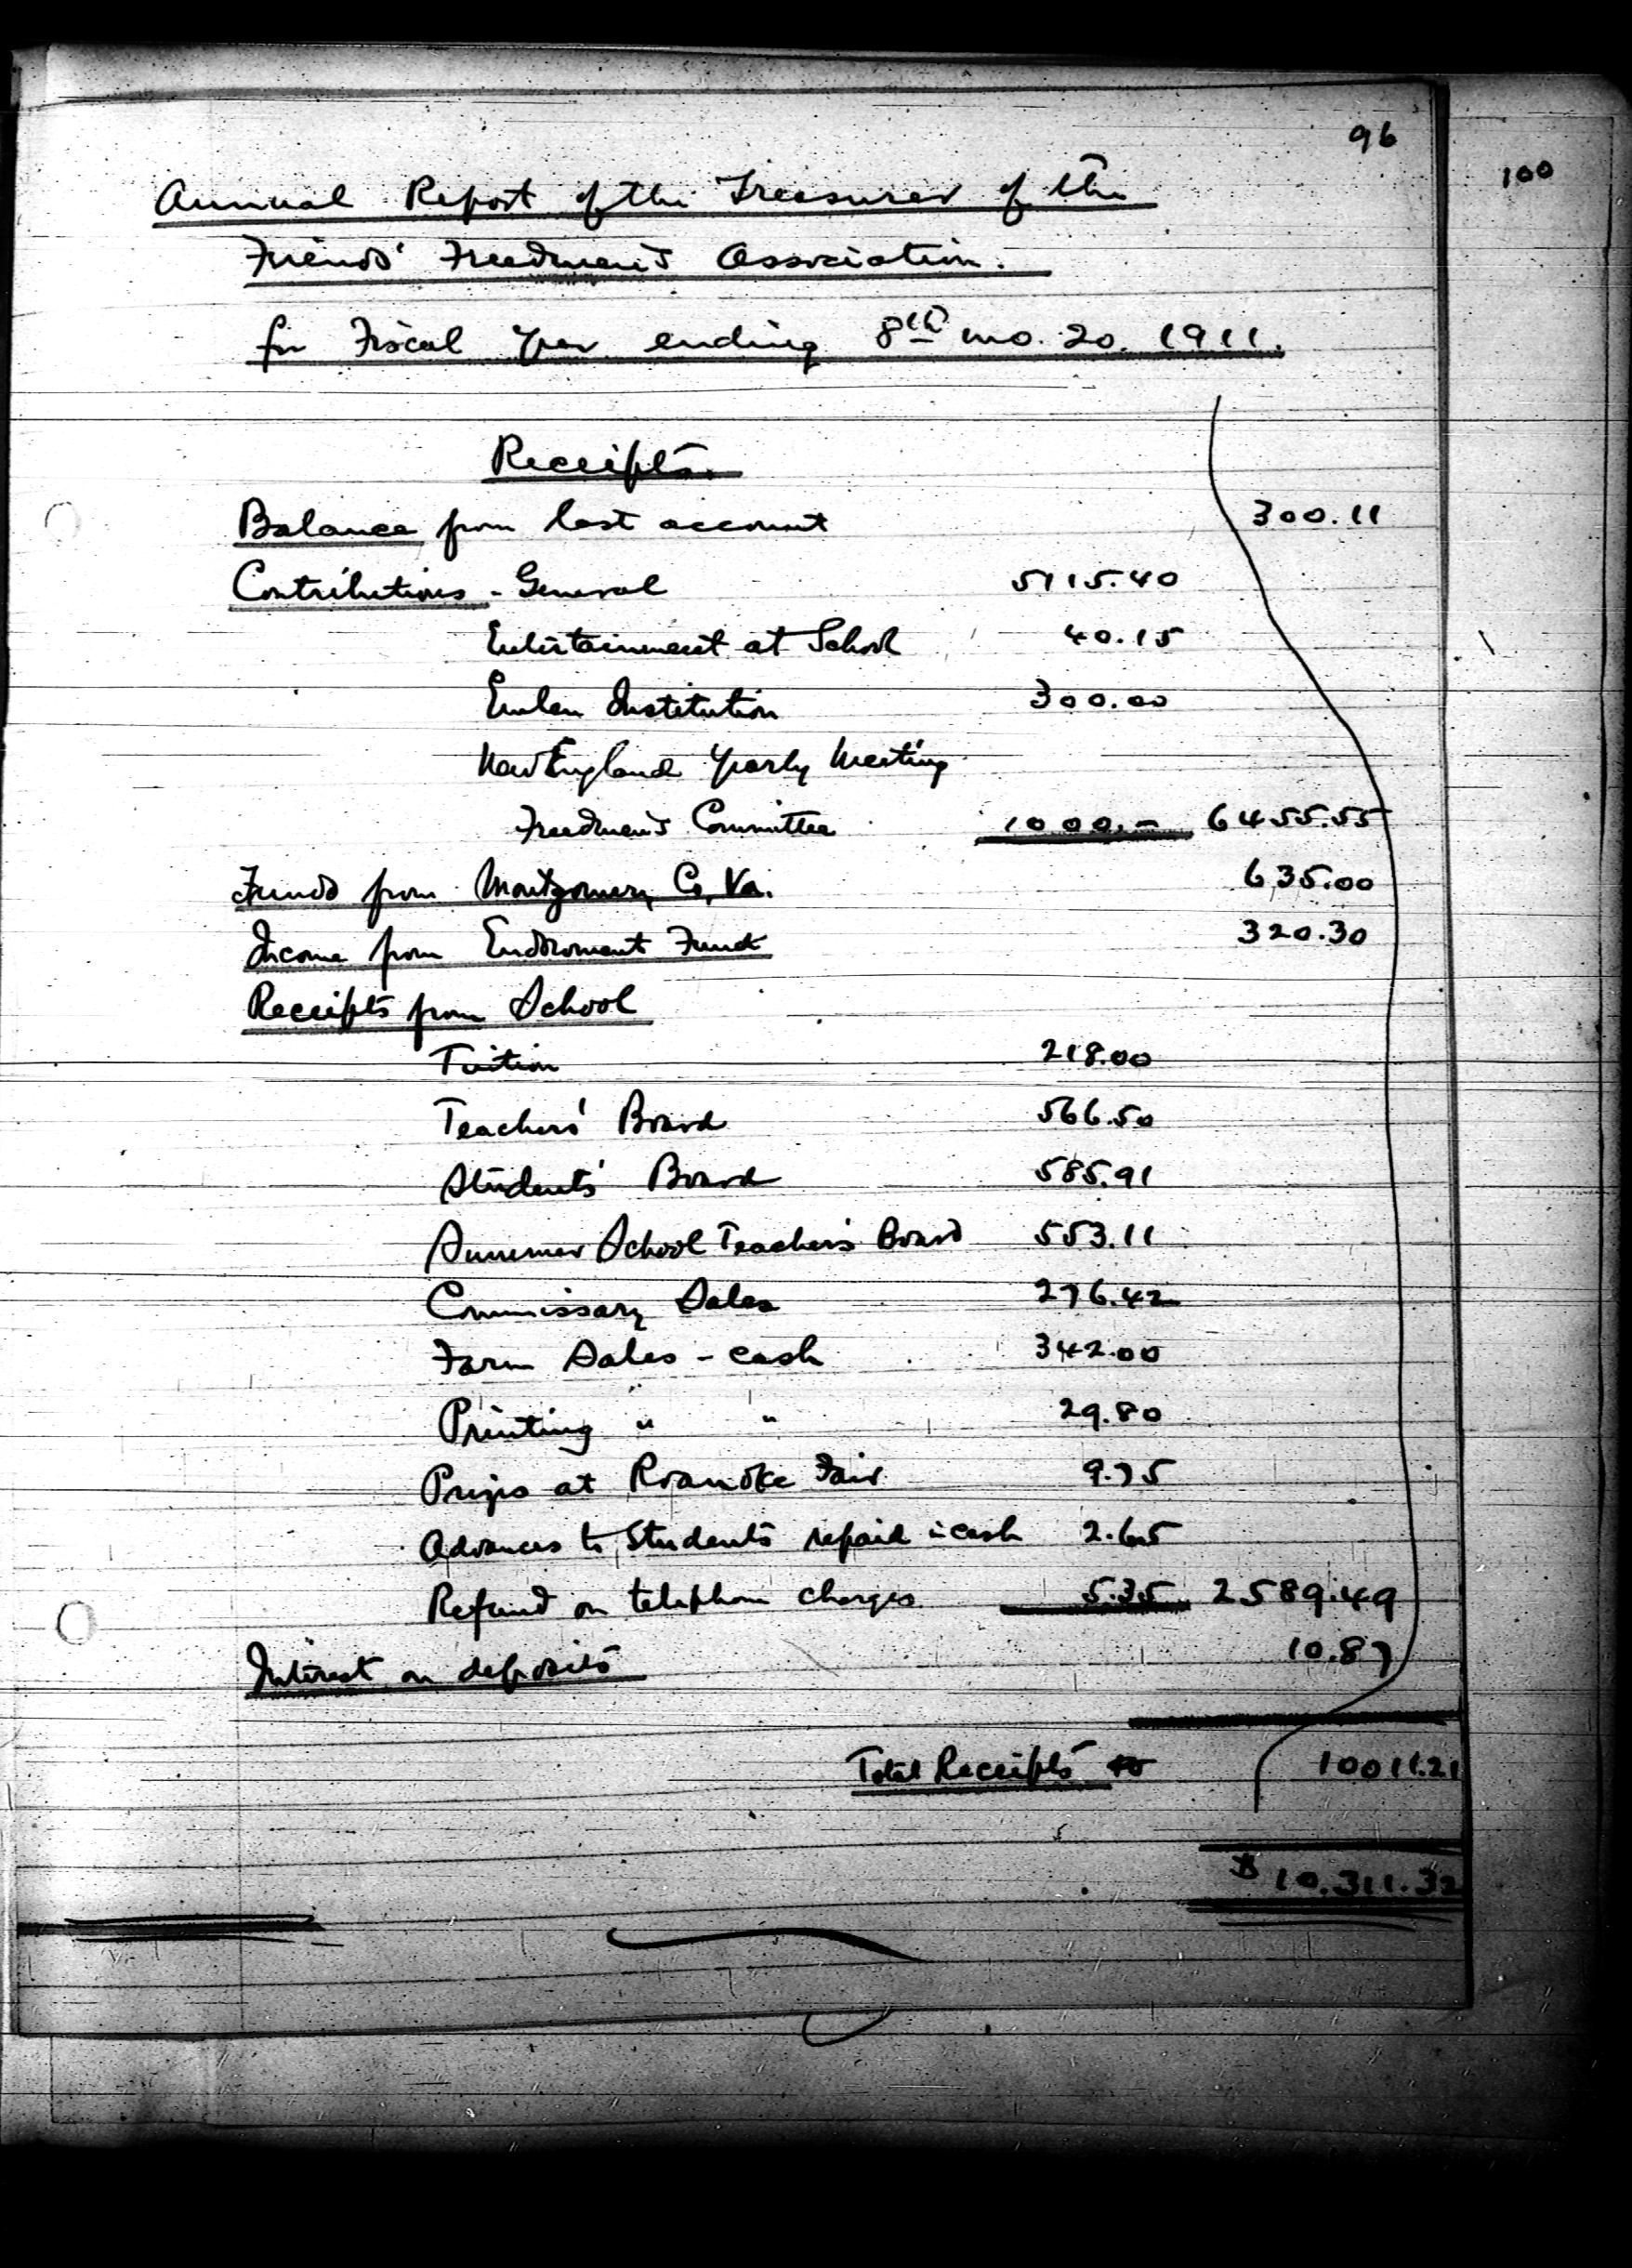 96
100
Annual Report of the Treasurer of the
Friends' Freedmen's Association.
for Fiscal Year ending 8th mo. 20. 1911.
Receipts.
Balance from last account 300.11
Contributions - General 5115.40
Entertainment at School 40.15
Emlen Institution 300.00
New England Yearly Meeting
Freedmen's Committee 1000.- 6455.55
Funds from Montgomery Co, Va. 635.00
Income from Endowment Fund 320.30
Receipts from School
Tuition 218.00
Teachers' Board 566.50
Students' Board 585.91
Summer School Teacher's Board 553.11
Commissary Sales 276.42
Farm Sales - cash 342.00
Printing " " 29.80
Prizes at Roanoke Fair 9.75
Advances to Students repaid in cash 2.65
Refund on telephone charges 5.35 2589.49
Interest on deposits 10.87
Total Receipts 10011.21
$10.311.32